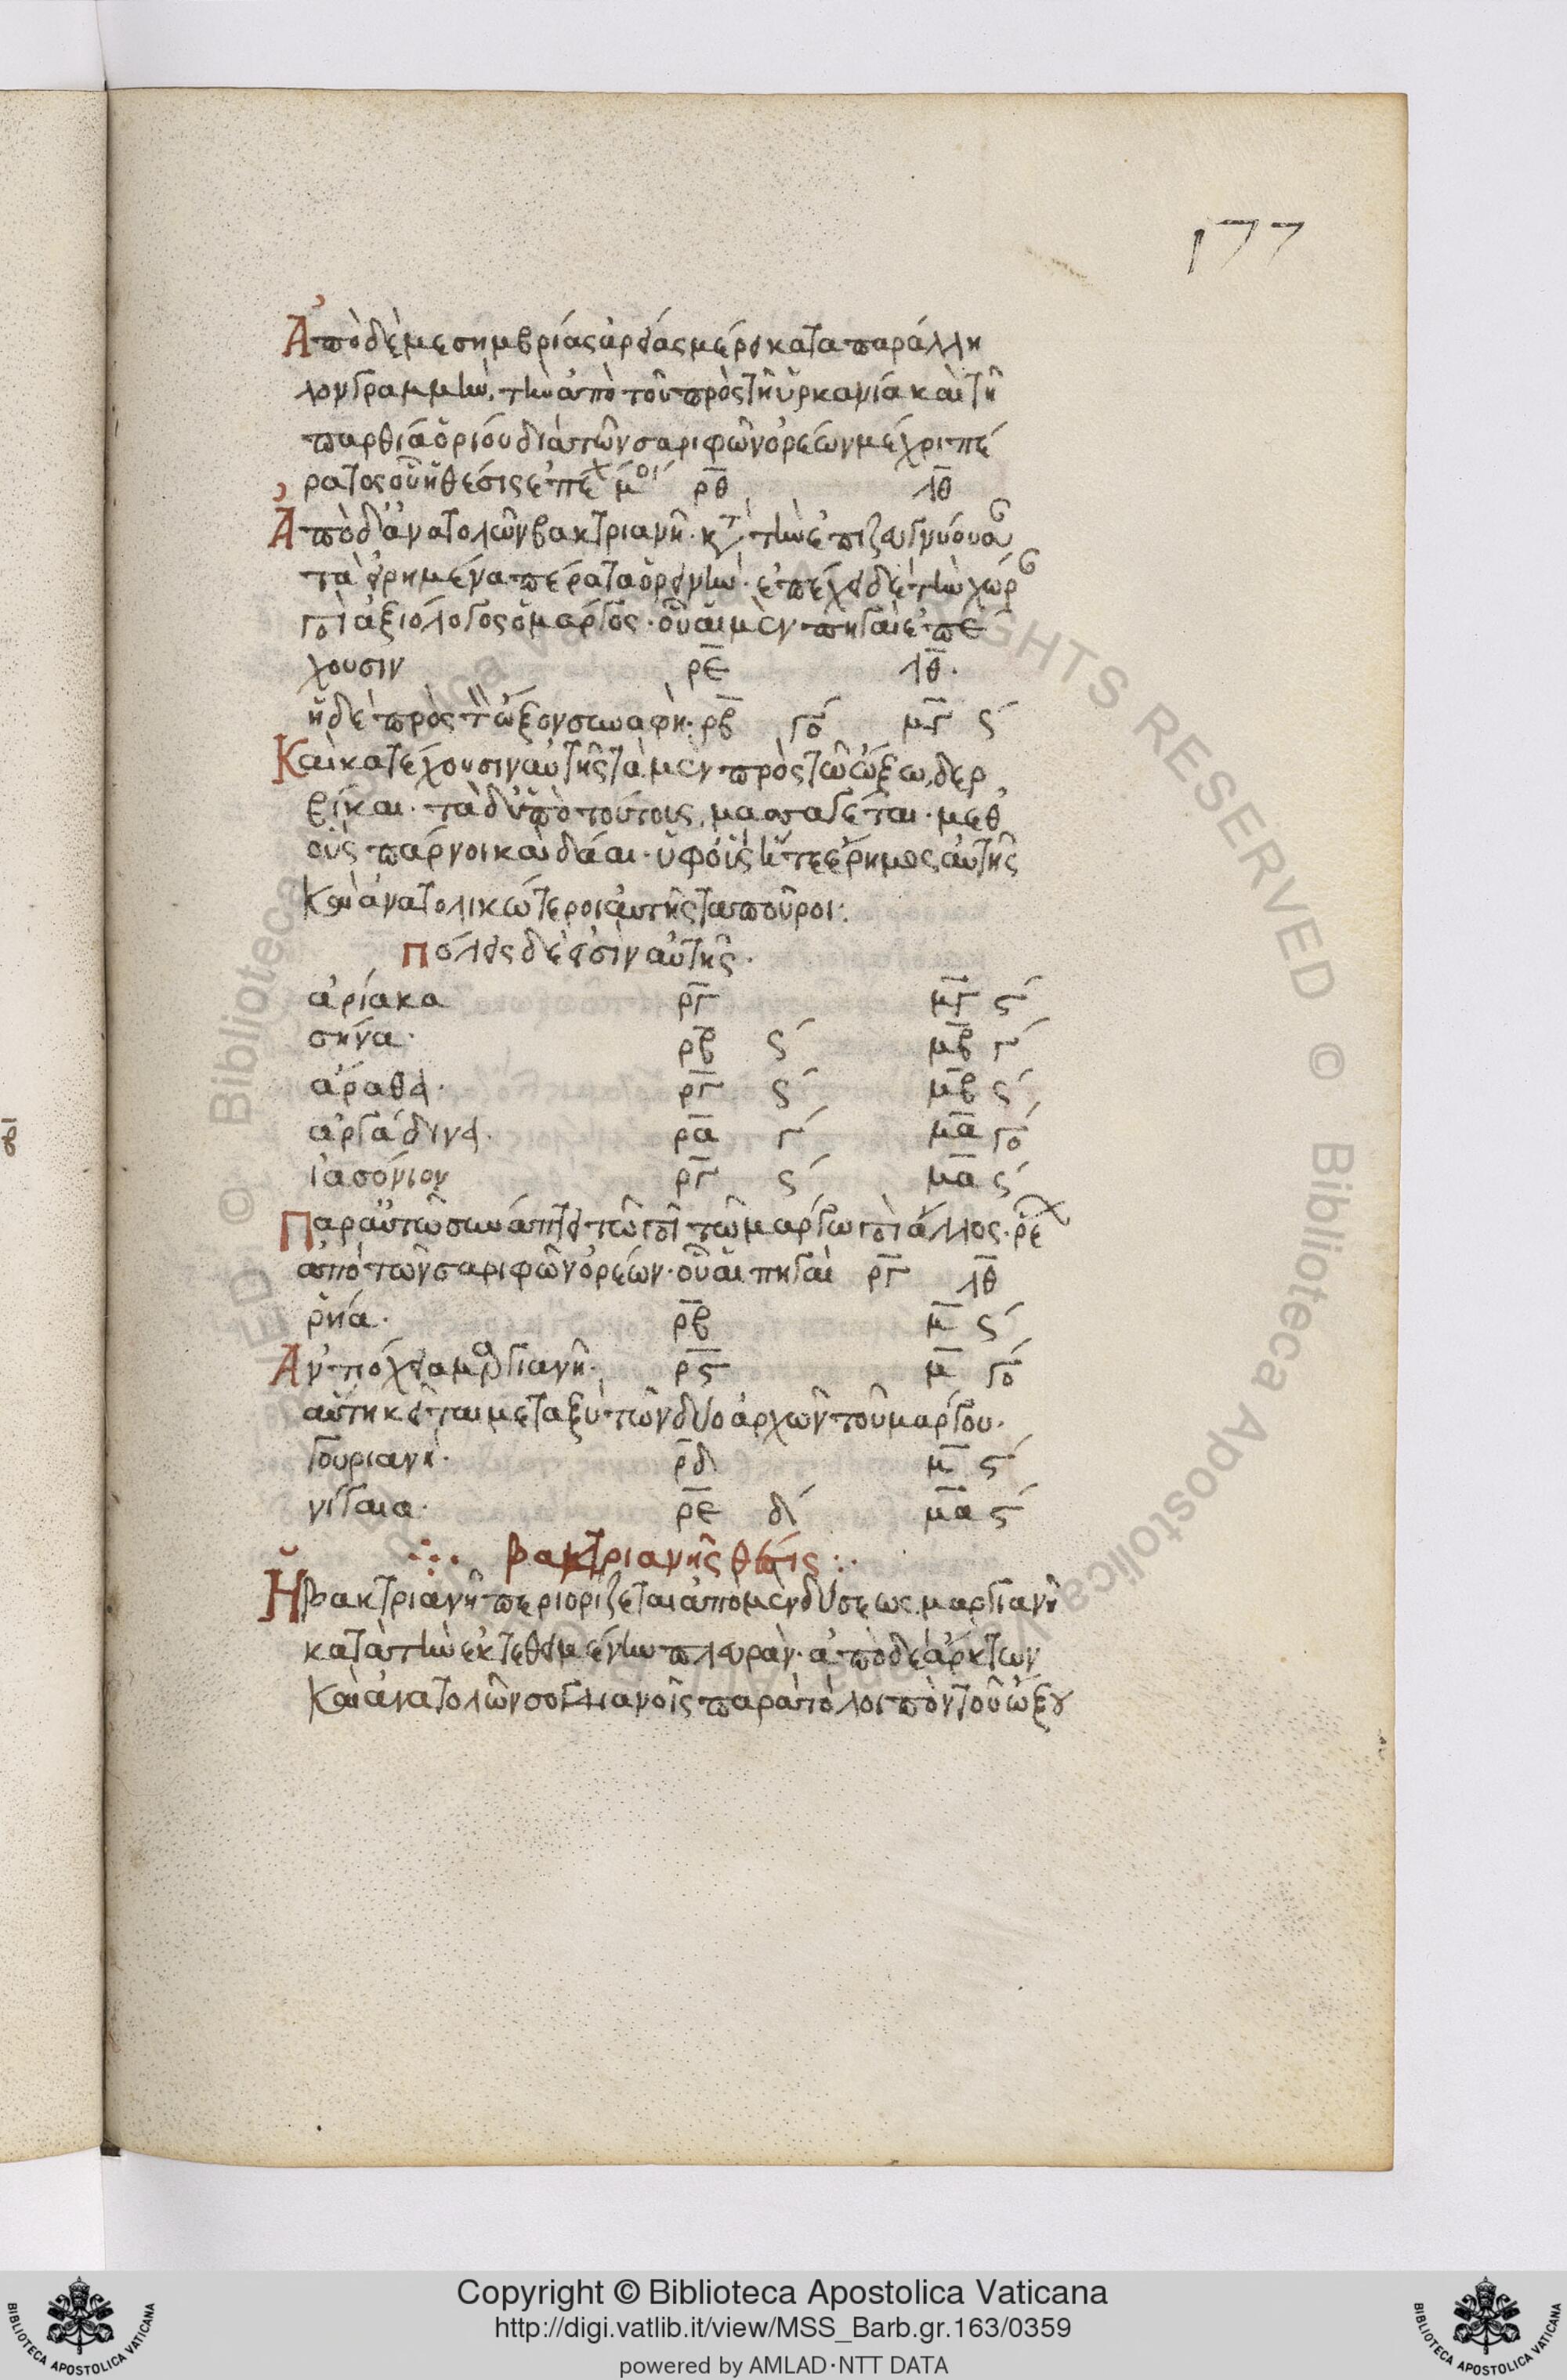 177
Ἀπὸ δὲ μεσημβρίας ἀρείας μέρει κατα παράλλη
λον γραμμὴν. τὴν ἀπὸ τοῦ πρὸς τῆ ὑρκανία καὶ τῆ
παρθία ὁρίου διὰ τῶν σαρίφων ὀρέων μέχρι πέ
ρατος οὗ ἡ θέσις ἐπέχ μοί ρθ λθ
Ἀπὸ δ' ἀνατολῶν βακτριανῆ. κτ τὴν ἐπιζευγνύουσ
τὰ εἰρημένα πέρατα ὀρεινὴν. ἐπέχει δὲ τὴν χώρ
ποτ ἀξιόλογος ὁ μάργος. οὗ αἱ μὲν πηγαὶ ἐπέ
χουσιν ρε λθ.
ἡ δὲ πρὸς τὸν ὦξον συναφὴ. ρβ γο μγ ς
Καὶ κατέχουσιν αὐτῆς τὰ μὲν πρὸς τῶ ὤξω, δερ
βίκαι. τὰ δ' ὑπὸ τούτοις, μασσαγέται. μεθ'
οὓς πάρνοι καὶ δάαι. ὑφ' οἷς ἥ τε ἔρημος αὐτῆς
Καὶ ἀνατολικώτεροι αὐτῆς ταπούροι:
πόλεις δέ εἰσὶν αὐτῆς.
ἀρίακα ργ μγ ς
σήνα. ρβ ς μβ γ
ἀραθα. ργ ς μβ ς
ἀργάδινα. ρα γ μα γο
ἰασόνιον ργ ς μα ς
Παρ αὐτῶ συνάπτει τῶ ποτ τῶ μάργω ποτ ἄλλος. ρέ
ἀπὸ τῶν σαρίφων ὀρέων. οὗ αἱ πηγαὶ ργ λθ
ῥηία. ρβ μ ς
Ἀντιόχεια μαργιανὴ. ρς μ γο
αὕτη κεῖται μεταξὺ τῶν δύο ἀρχῶν τοῦ μάργου.
Γουριανὴ. ρδ μ ς
νίγαια. ρε δ μα ς
∴ Βακτριανῆς θέσις :·
Ἡ βακτριανὴ περιορίζεται ἀπὸ μὲν δύσεως μαργιανῆ
κατὰ τὴν ἐκτεθειμένην πλευρὰν. ἀπὸ δὲ ἄρκτων
Καὶ ἀνατολῶν σογδιανοῖς παρὰ τὸ λοιπὸν τοῦ ὤξου
Copyright © Biblioteca Apostolica Vaticana
http://digi.vatlib.it/view/MSS_Barb.gr.163/0359
powered by AMLAD·NTT DATA